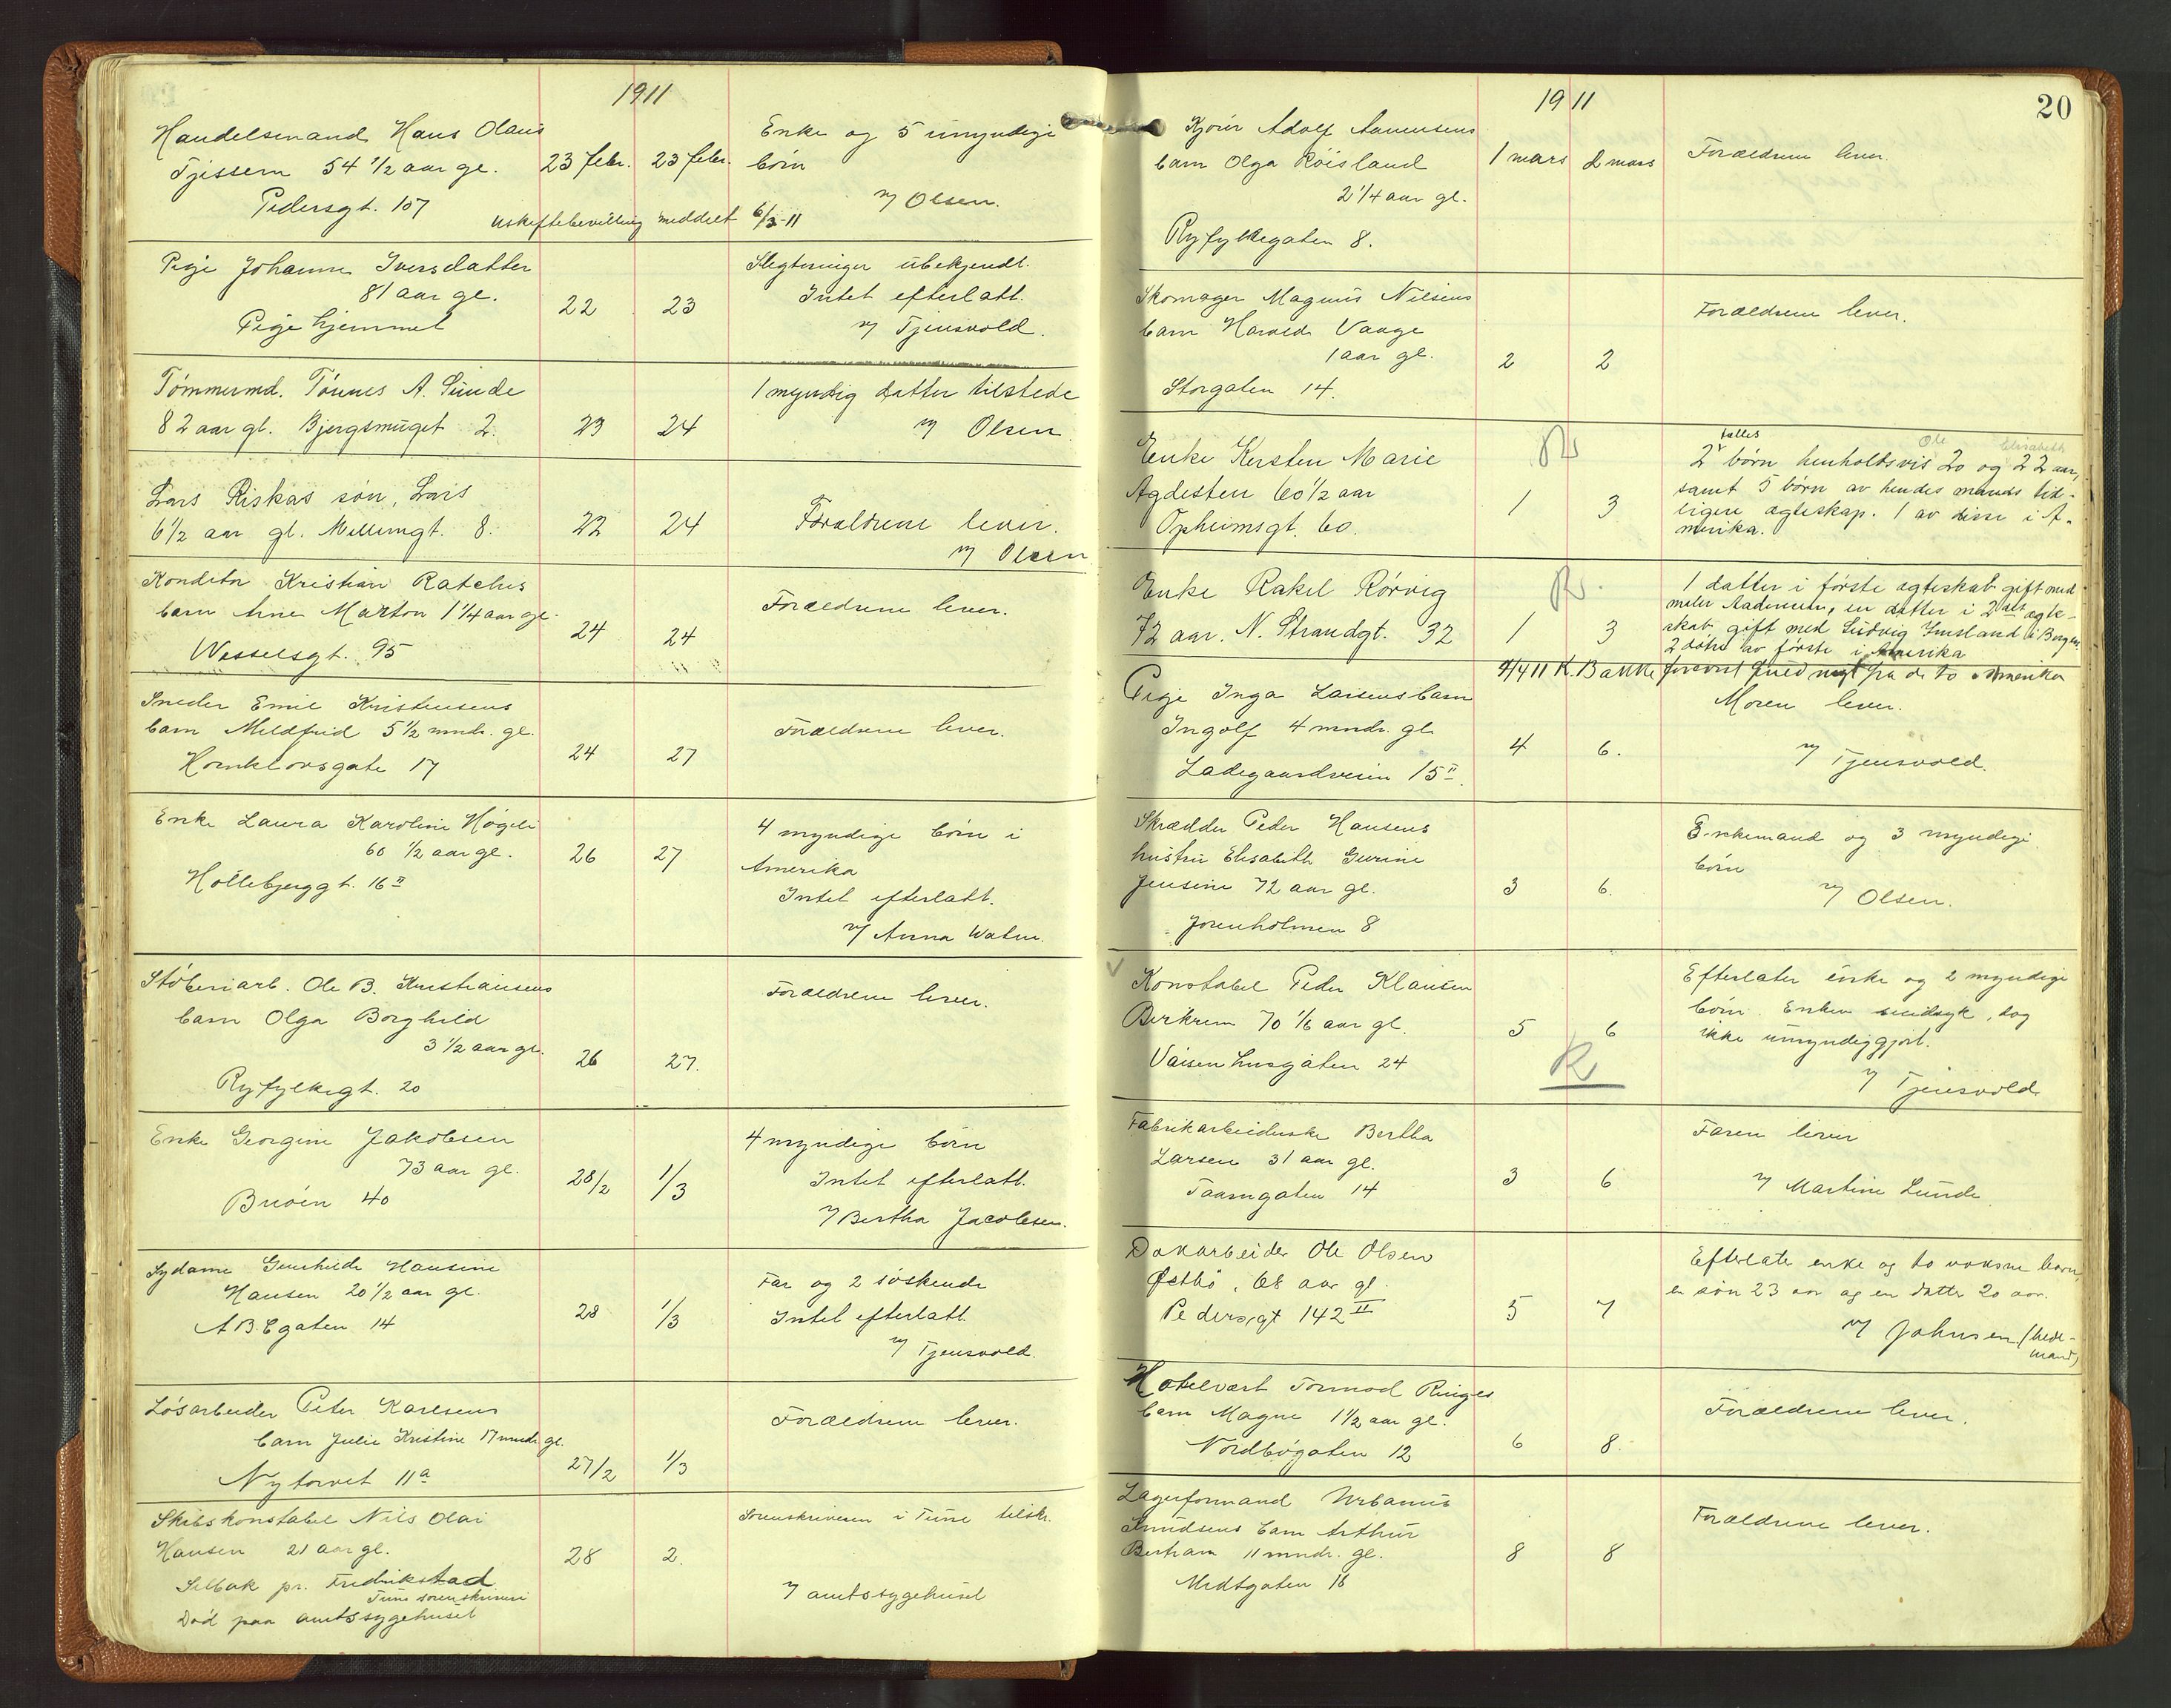 1911
Handelsmand Hans Olaus
Tjissem 54 1/2 aar gl.
Pedersgt. 107
23 febr. 23 febr.
Enke og 5 umyndige
börn
v/ Olsen.
Uskiftebevilling meddelt 6/3-11
Pige Johanne Iversdatter
81 aar gl.
Pigehjemmet
22 23
Slegtninger ubekjendt.
Intet efterlatt.
v/ Tjensvold.
Tömmermd. Tönnes A. Sunde
82 aar gl. Bjergsmuget 2.
23 24
1 myndig datter tilstede
v/ Olsen
Lars Riskas sön, Lars
6 1/2 aar gl. Mellemgt. 8.
22 24
Forældrene lever.
v/ Olsen
Konditor Kristian
barn Arne Marton 1 1/4 aar gl.
Wesselsgt. 95
24 24
Forældrene lever.
Snedker Emil Kristensens
barn Meldfrid 5 1/2 mndr. gl.
Hornklovsgate 17
24 27
Forældrene lever.
Enke Laura Karoline
60 1/2 aar gl.
16 II
26 27
4 myndige börn i
Amerika
Intet efterlatt.
v/ Anna
Stöberiarb. Ole B. Kristiansens
barn Olga Borghild
3 1/2 aar gl.
Ryfylkegt. 20
26 27.
Forældrene lever.
Enke Georgine Jakobsen
73 aar gl.
40
28/2 1/3
4 myndige börn
Intet efterlatt.
v/ Bertha Jacobsen.
Sydame Gunhilde Hansine
Hansen 20 1/2 aar gl.
A.B.C gaten 14
28 1/3
Far og 2 söskende
Intet efterlatt.
v/ Tjensvold.
Lösarbeider Peter Karlsens
barn Julie Kristine 17 mndr. gl.
Nytorvet 11a
27/2 1/3
Forældrene lever.
Skibskonstabel Nils Olai
Hansen 21 aar gl.
Selbak pr. Fredrikstad
Tune sorenskriveri
Död paa amtssygehuset
28 2.
Sorenskriveren i Tune tilskr.
v/ amtssygehuset
1911
20
Kjörer Adolf Aanensens
barn Olga Röisland
2 1/4 aar gl.
Ryfylkegaten 8.
1 mars 2 mars
Forældrene lever.
Skomager Magnus Nilsens
barn Harald Vaage
1 aar gl.
Storgaten 14.
2 2
Forældrene lever.
Enke Kersten Marie
Agdesten 60 1/2 aar
Opheimsgt. 60.
R
1 3
fælles
Ole Elisabeth
2 börn henholdsvis 20 og 22 aar,
samt 5 börn av hendes mands tid-
ligere ægteskap. 1 av disse i A-
merika.
Enke Rakel Rörvig
72 aar. N. Strandgt. 32
R.
1 3
1 datter i förste ægteskab gift med
maler, en datter i 2det ægte-
skab gift med Ludvig i Bergen.
2 dötre av förste i Amerika
4/4 11 K. Bakke fra de to i Amerika
Pige Inga Larsens barn
Ingolf 4 mndr. gl.
Ladegaardsveien 15 II.
4 6.
Moren lever.
v/ Tjensvold.
Skrædder Peder Hansens
hustru Elisabeth Gurine
Jensine 72 aar gl.
Jorenholmen 8
3 6.
Enkemand og 3 myndige
börn
v/ Olsen.
v
Konstabel Peder Klausen
Birkrem 70 1/6 aar gl.
Vaisenhusgaten 24
5 6
R
Efterlater enke og 2 myndige
börn. Enken sindsyk, dog
ikke umyndiggjort.
v/ Tjensvold
Fabrikarbeiderske Bertha
Larsen 31 aar gl.
Taarngaten 14
3 6
Faren lever
v/ Martine Lunde
Dokarbeider Ole Olsen
Östbö, 68 aar gl.
Pedersgt 142 II
5 7
Efterlater enke og to voksne barn,
en sön 23 aar og en datter 20 aar.
v/ Johnsen (bede-
mand)
Hotelvært Tormod Ringes
barn Magne 1 1/2 aar gl.
Nordbögaten 12
6 8.
Forældrene lever.
Lagerformand Urbanus
Knudsens barn Arthur
Bertram 11 mndr. gl.
Midtgaten 16
8 8
Forældrene lever.